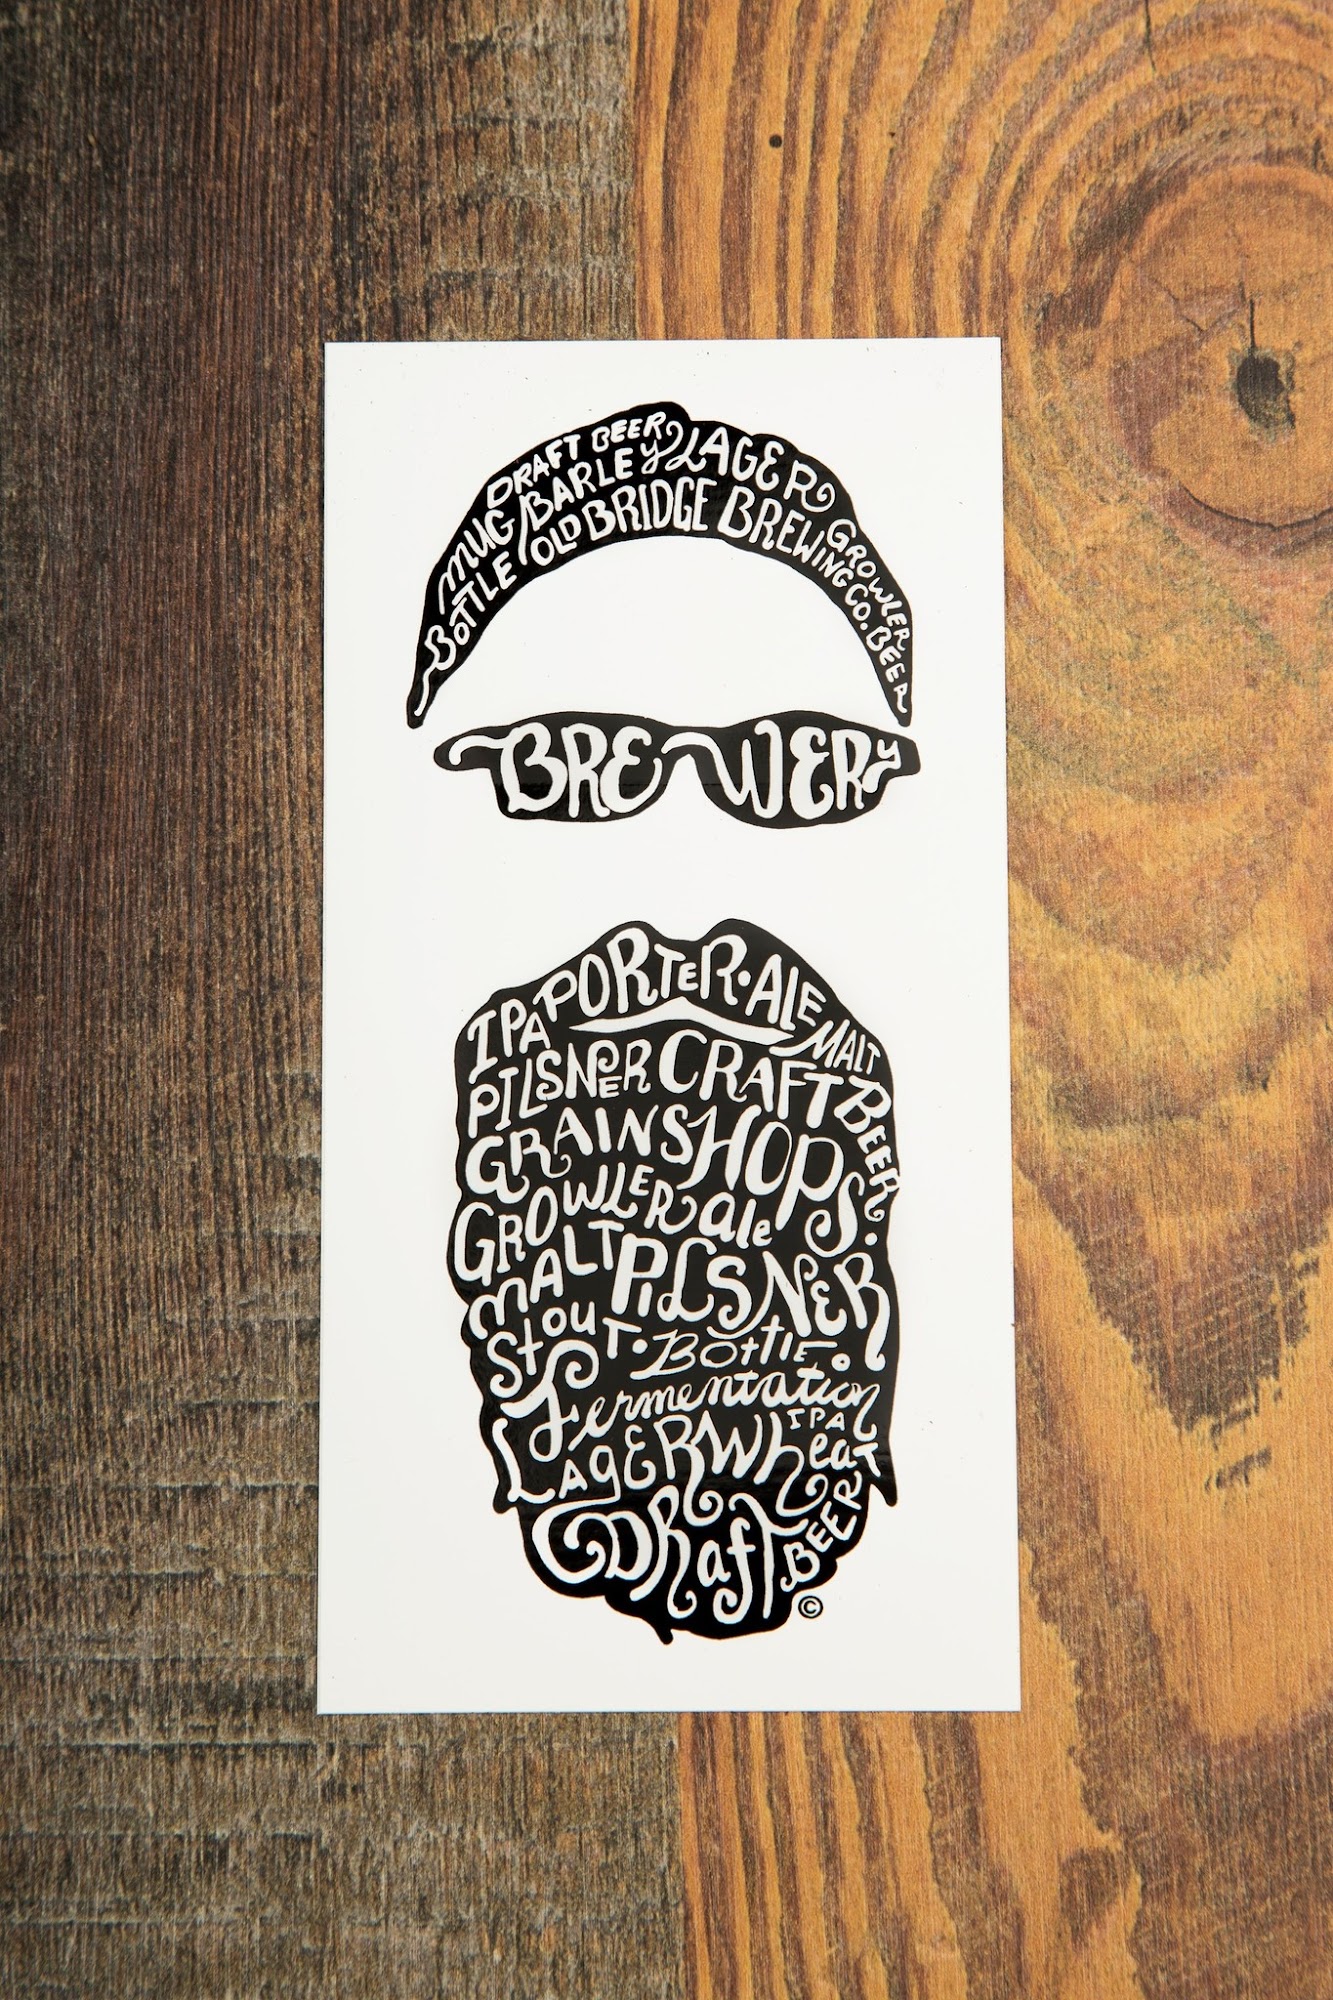 DRAFT BEER
MUG BARLEY LAGER GROWLER
BOTTLE OLD BRIDGE BREWING CO. BEER
BREWERY
IPA PORTER · ALE MALT
PILSNER CRAFT BEER
GRAINS HOPS.
GROWLER ale
MALT PILSNER
Stout · Bottle.
fermentation
LAgER Wheat IPA
DRaft BEER
©